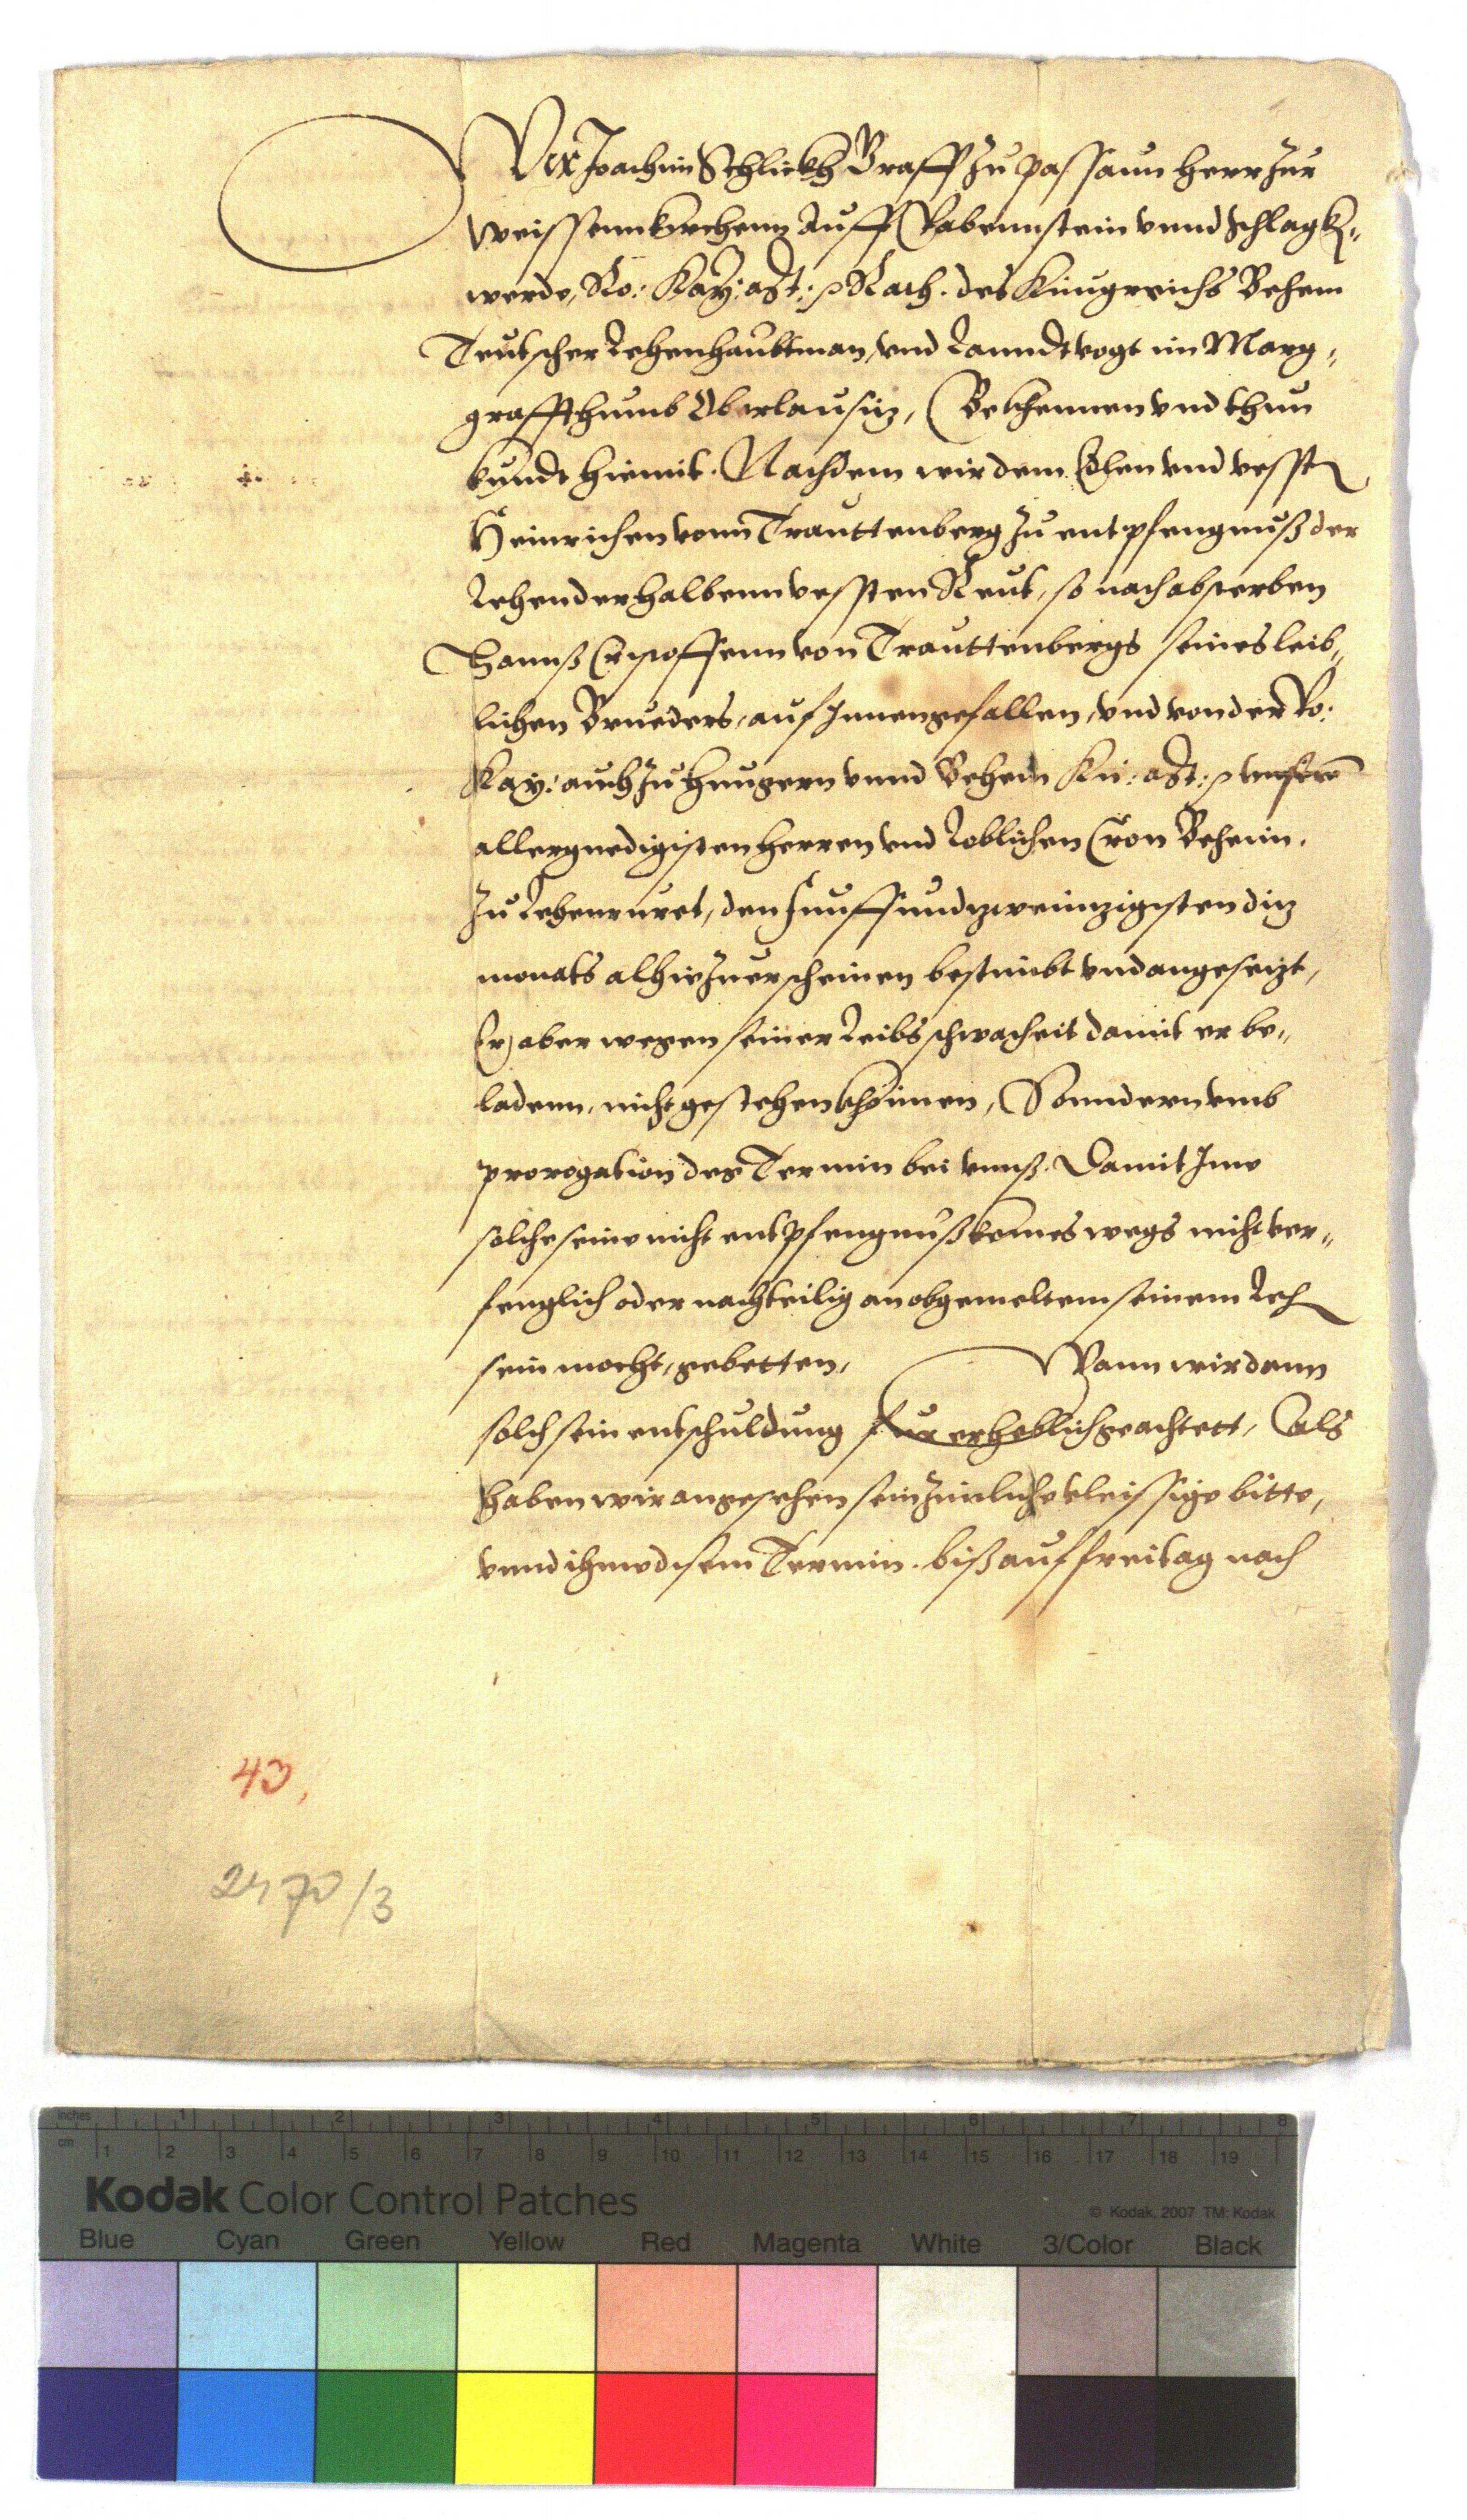 Wir Joachim Schlickh Graff zu passaun Herr zur
Weissennkirchenn auff Rabennstein vnnd Schlagkn¬
werde, Ro: Kay: Mt: p Rath. des Kunigreichs Behem
Teutscher Lehenhaubtman, vnd Lanndtvogt im Marg¬
graffthumb Oberlausitz, Bekhennen vnd thun
kundt hiemit. Nachdem wir dem Edlen vnd vessten
Heinrichen vonn Trauttenberg zu entpfengnuß der
Lehen der halbenn vessten Reut, so nach absterben
Hannß von Trauttenbergs seines leib¬
lichen Brueders, auf Innen gefallen, vnd von der Ro:
Kay: auch zu Hungern vnnd Behem Kü: Mt: p vnserm
allergnedigisten Herren vnd Loblichen Cron Beheim.
zu Lehen ruret, den funffundzweintzigisten ditz
monats alhie zuerscheinen bestimbt vnd angesetzt,
Er aber wegen seiner Leibs schwacheit damit er be¬
ladenn, nicht gestehen khönnen, Sonndern vmb
prorogation des Termin bei vnnß. Damit Ime
solche seine nicht entpfengnuß keines wegs nicht ver¬
fenglich oder nachteilig an obgemeltem seinem Lehen
sein mocht, gebetten, Wann wir dann
solch sein entschuldung fur erheblich geachtett, Als
haben wir angesehen sein zimliche vleissige bitte,
vnnd ihme disem Termin. biß auf freitag nach
43,
2470/3
inches 1 2 3 4 5 6 7 8
cm 1 2 3 4 5 6 7 8 9 10 11 12 13 14 15 16 17 18 19
Kodak Color Control Patches
© Kodak, 2007 TM: Kodak
Blue Cyan Green Yellow Red Magenta White 3/Color Black